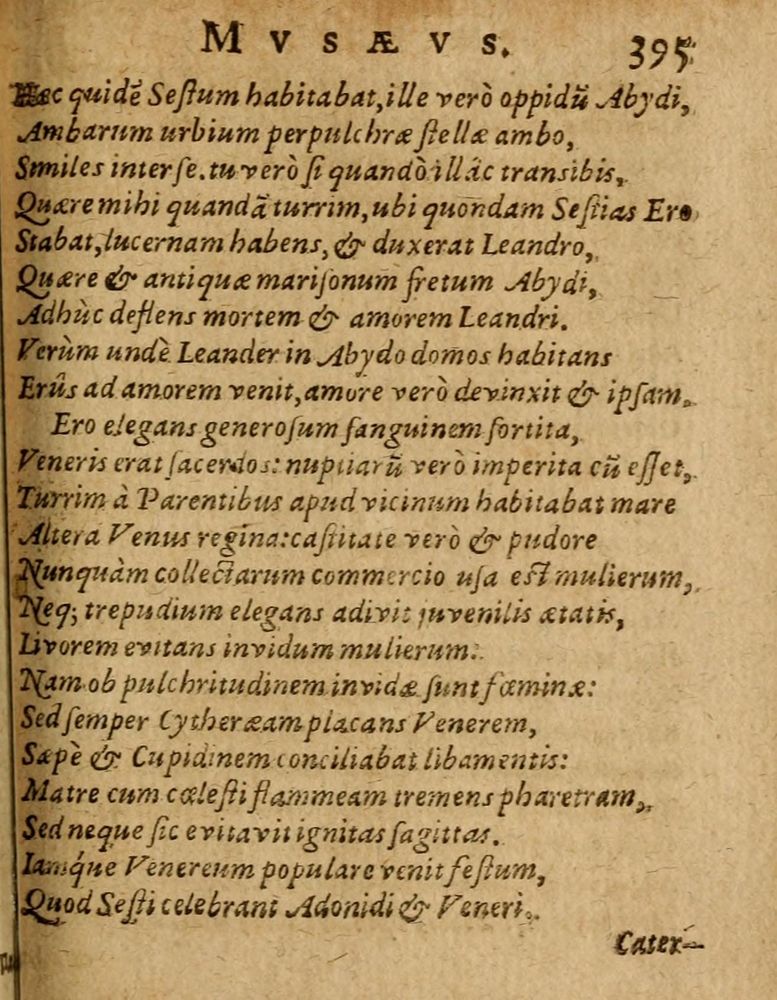 MVSÆVS. 395
Hæc quidẽ Seſtum habitabat, ille verò oppidũ Abydi,
Ambarum urbium perpulchræ ſtellæ ambo,
Similes inter ſe. tu verò ſi quandò illâc transibis,
Quære mihi quandã turrim, ubi quondam Seſtias Ero
Stabat, lucernam habens, & duxerat Leandro,
Quære & antiquæ mariſonum fretum Abydi,
Adhùc deflens mortem & amorem Leandri.
Verùm undè Leander in Abydo domos habitans
Erûs ad amorem venit, amore verò devinxit & ipſam.
Ero elegans generoſum ſanguinem ſortita,
Veneris erat ſacerdos: nuptiarũ verò imperita cũ eſſet,
Turrim à Parentibus apud vicinum habitabat mare
Altera Venus regina: caſtitate verò & pudore
Nunquàm collectarum commercio uſa eſt mulierum,
Neq; trepudium elegans adivit juvenilis ætatis,
Livorem evitans invidum mulierum:
Nam ob pulchritudinem invidæ ſunt fœminæ:
Sed ſemper Cytheræam placans Venerem,
Sæpè & Cupidinem conciliabat libamentis:
Matre cum cœleſti flammeam tremens pharetram,
Sed neque ſic evitavit ignitas ſagittas.
Iamq́ue Venereum populare venit feſtum,
Quod Seſti celebrant Adonidi & Veneri.
Cater-